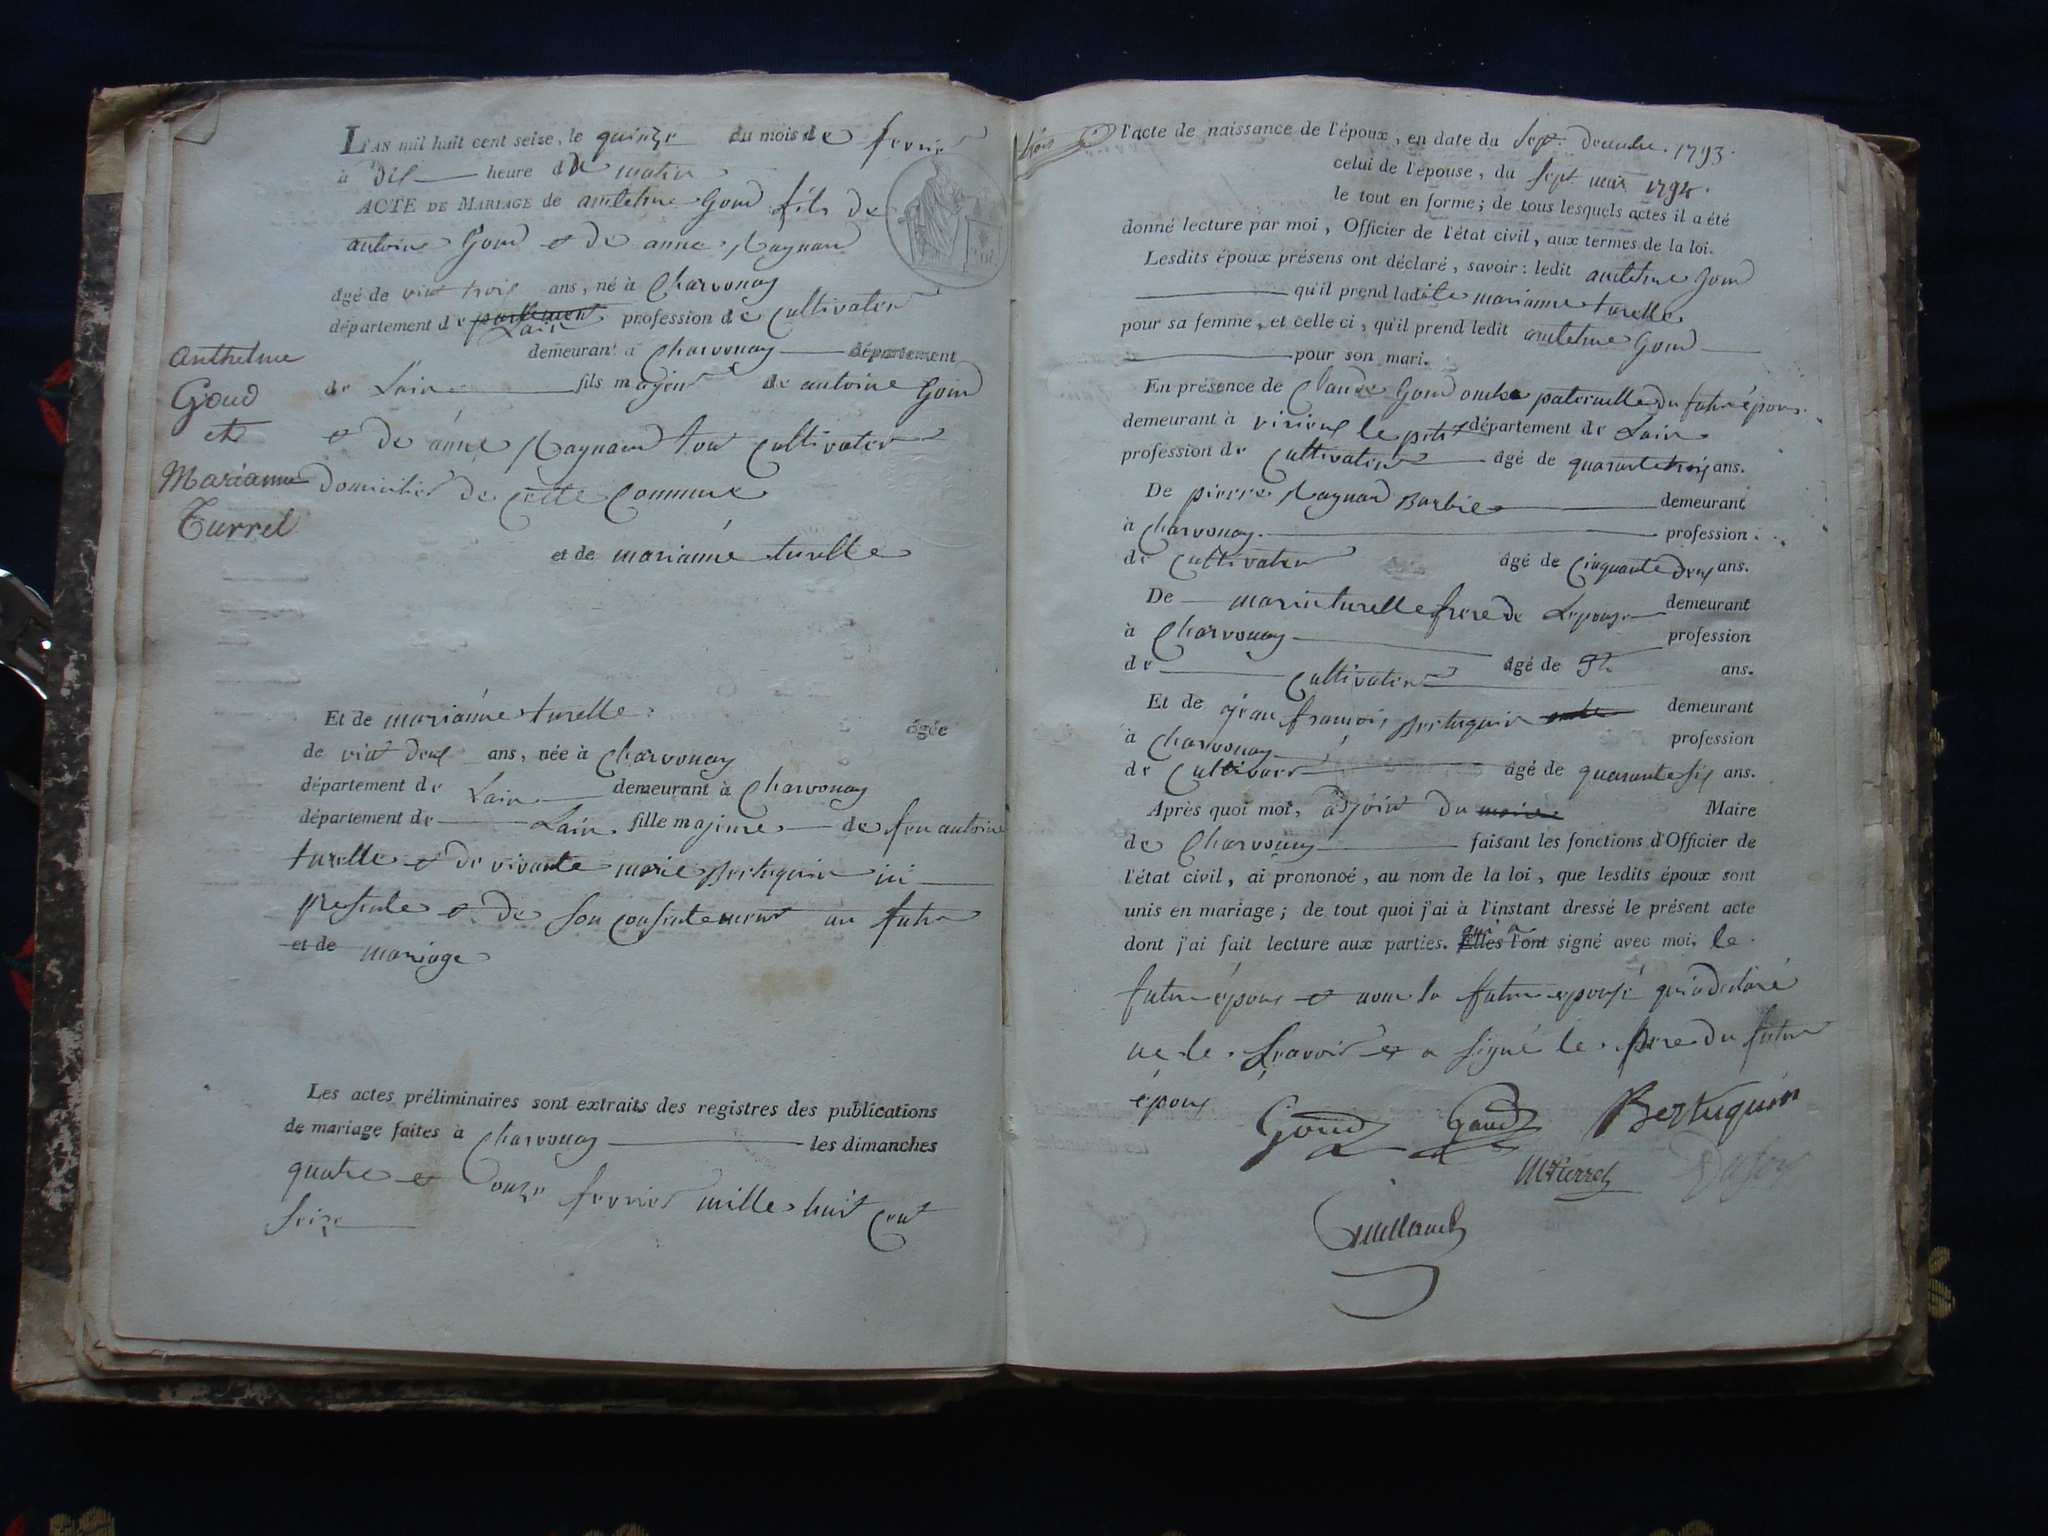 L'AN mil huit cent seize, le quinze du mois de fevrier
à dix heure du matin
ACTE DE MARIAGE de antelme Goud fils de
antoine Goud et de anne Raynaud
âgé de vint trois ans, né à Charvonay
département de Lain profession de Cultivateur
demeurant à Charvonay département
de Lain fils majeur de antoine Goud
et de anne Raynaud tout Cultivateur
domicilié de Cette Commune
et de marianne turelle
Anthelme
Goud
et
Marianne
Turrel
Et de marianne turelle âgée
de vint deux ans, née à Charvonay
département de Lain demeurant à Charvonay
département de Lain fille majeure de feu antoine
turelle et de vivante marie Bertuquin ici
presente et de son consentement au futur
et de mariage
Les actes préliminaires sont extraits des registres des publications
de mariage faites à Charvonay les dimanches
quatre et onze fevrier mille huit Cent
seize
l'acte de naissance de l'époux, en date du sept decembre 1793
celui de l'épouse, du sept mars 1794
le tout en forme; de tous lesquels actes il a été
donné lecture par moi, Officier de l'état civil, aux termes de la loi.
Lesdits époux présens ont déclaré, savoir: ledit antelme Goud
qu'il prend ladite marianne turelle
pour sa femme, et celle ci, qu'il prend ledit antelme Goud
pour son mari.
En présence de Claude Goud oncle paternelle du futur époux
demeurant à virieux le petit département de Lain
profession de Cultivateur âgé de quarante trois ans.
De pierre Raynaud Barbie demeurant
à Charvonay profession
de Cultivateur âgé de Cinquante deux ans.
De marin turelle frere de Lepouse demeurant
à Charvonay profession
de Cultivateur âgé de ans.
Et de jean françois Bertuquin demeurant
à Charvonay profession
de Cultivateur âgé de quarante six ans.
Après quoi moi, adjoint du maire Maire
de Charvonay faisant les fonctions d'Officier de
l'état civil, ai prononcé, au nom de la loi, que lesdits époux sont
unis en mariage; de tout quoi j'ai à l'instant dressé le présent acte
dont j'ai fait lecture aux parties. Elles l'ont signé avec moi, le
futur époux et non la future epouse qui a declaré
ne le sçavoir et a signé le pere du futur
époux
Goud Goud Bertuquin
M turrel